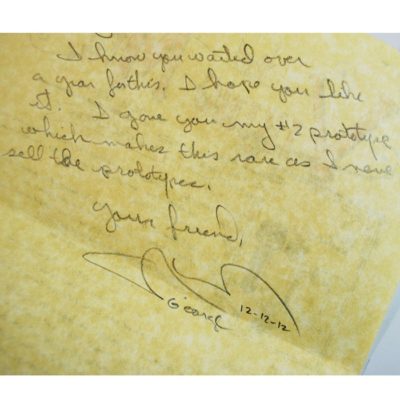 I know you waited over
a year for this. I hope you like
it. I gave you my #2 prototype
which makes this rare as I never
sell the prototypes.
Your friend,
George 12-12-12